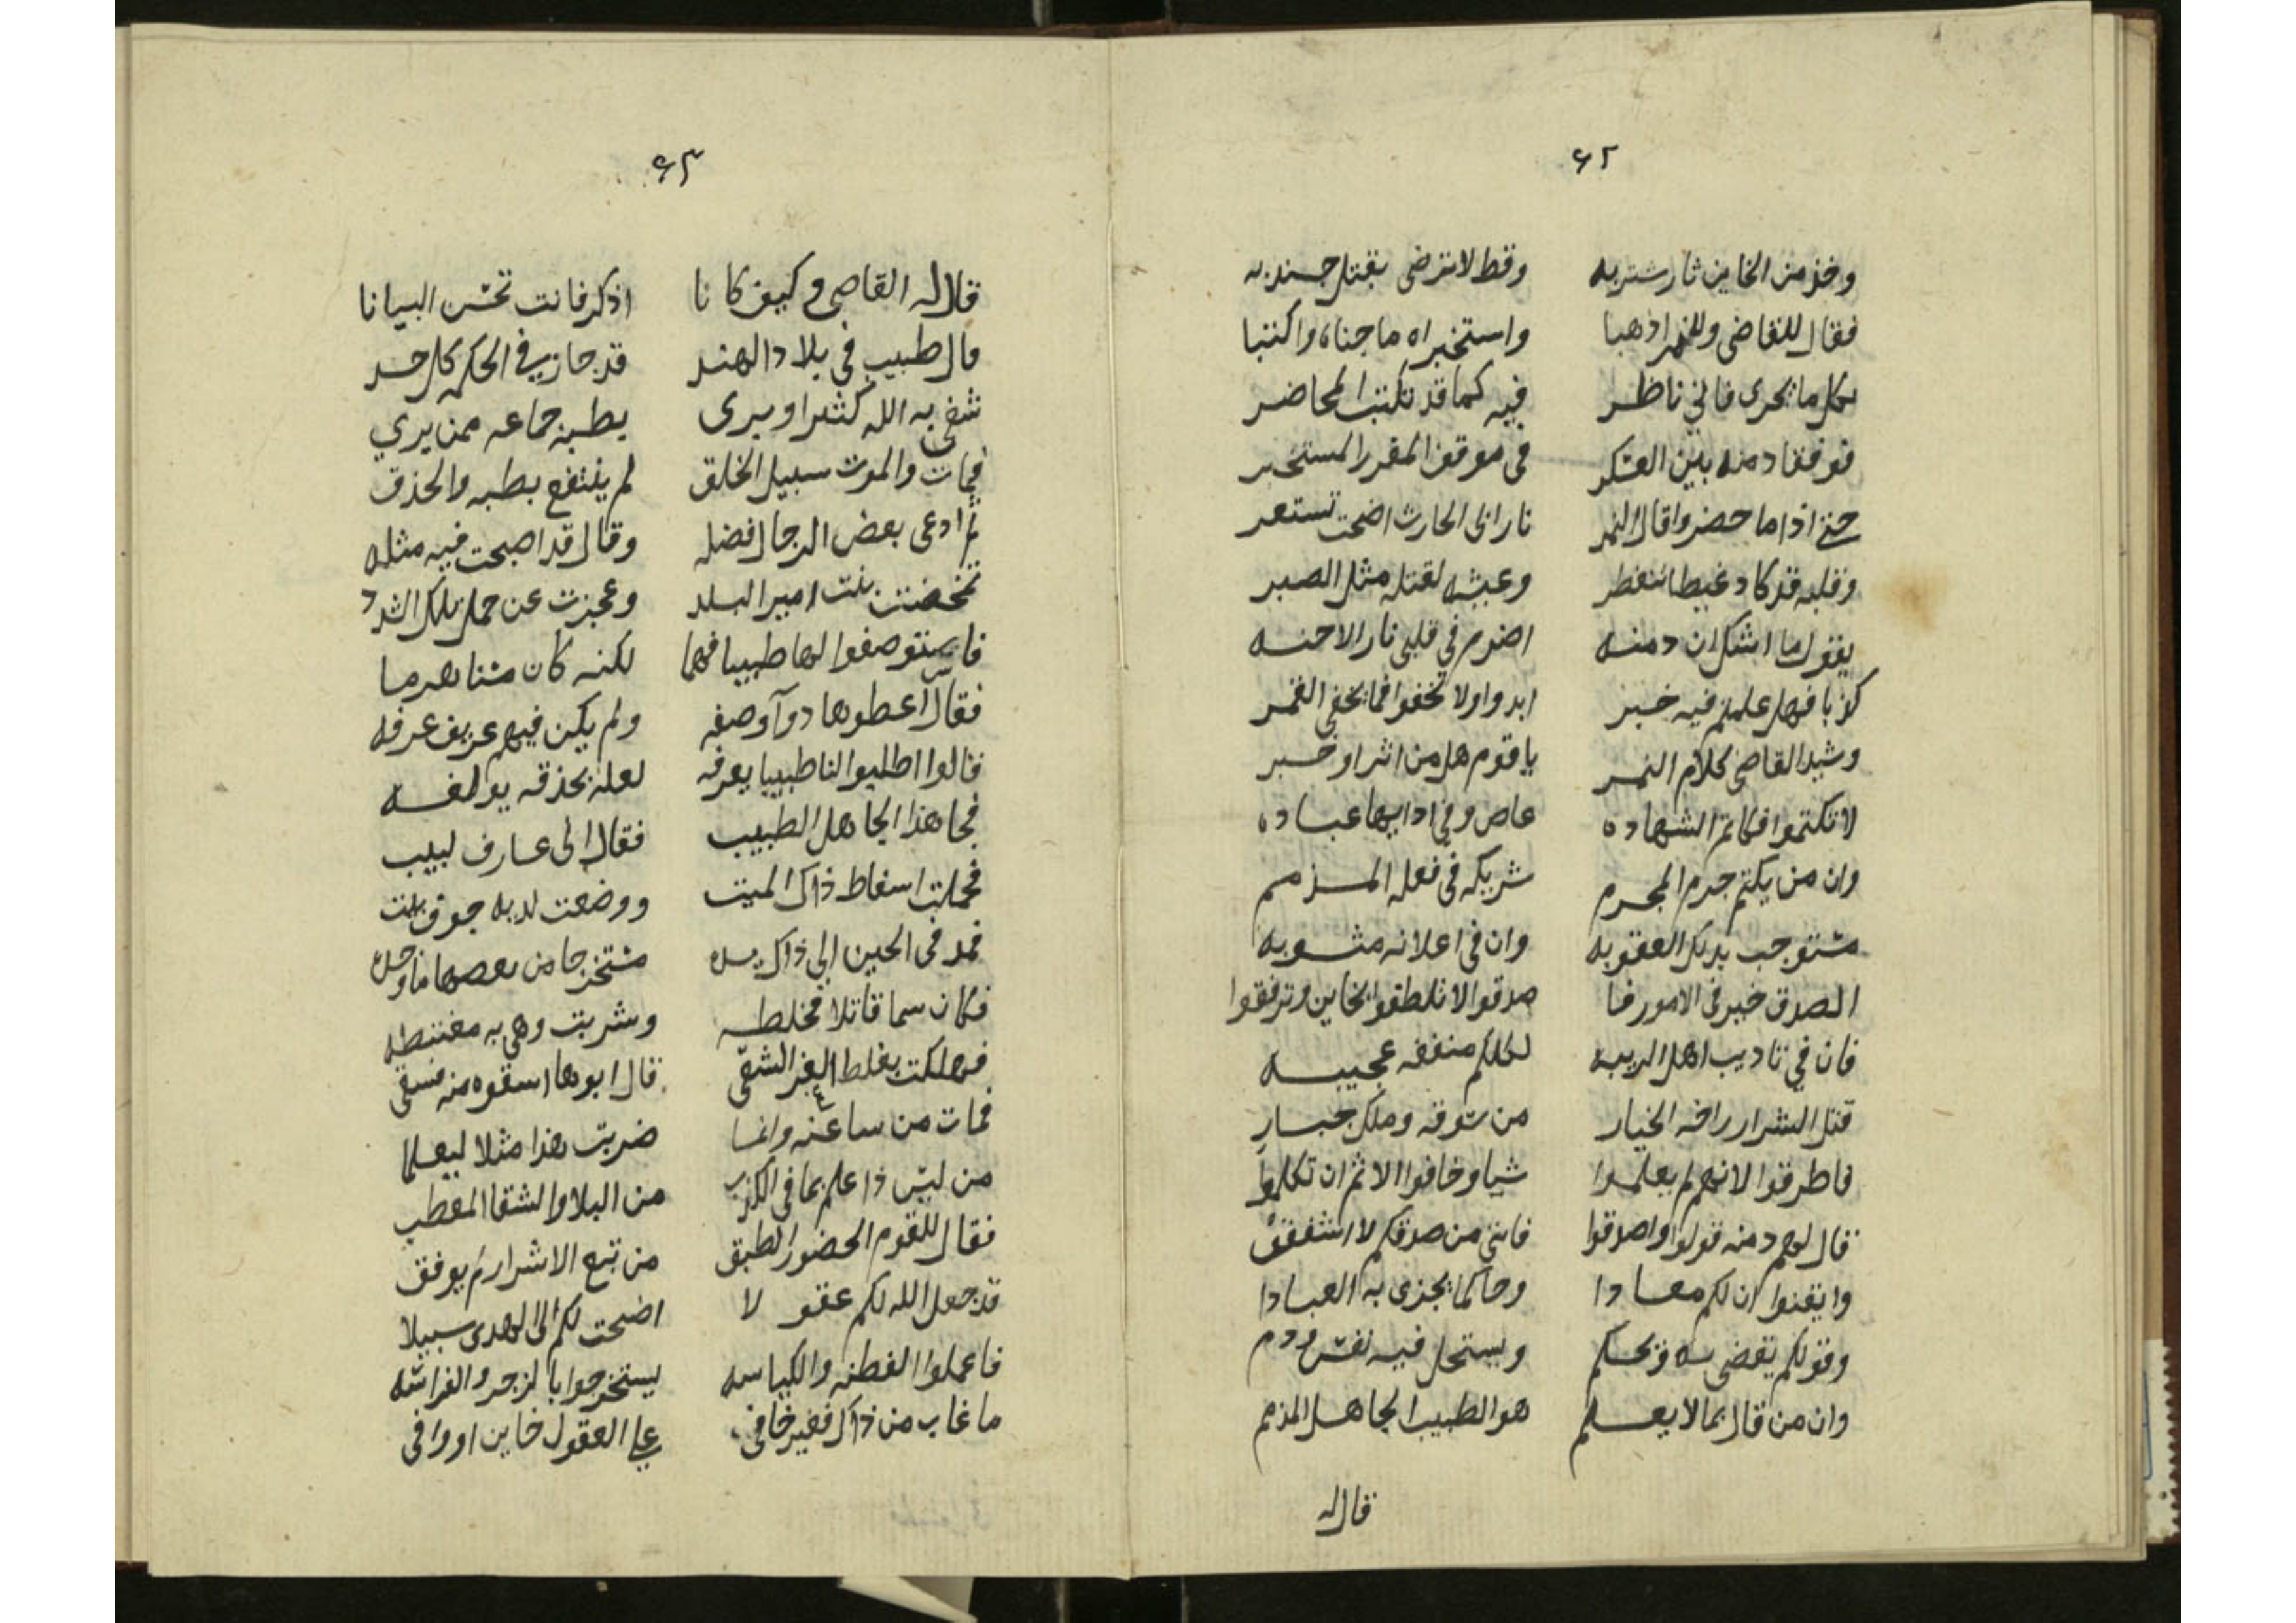 ٦٢
وخذ من الخاين ثار شتربه وقط لا ترضى بقتل جندبه
فقال للقاضى وللنمر اذهبا واستخبراه ما جناه واكتبا
بكل ما يجرى فاني ناظر فيه كما قد تكتب المحاضر
فوقفا دمنه بين العسكر فى موقف المقرر المستخبر
حتى اذا ما حضروا قال النمر نار الى الحارث اضحت تستعر
وقلبه قد كاد غيظا ينفطر وعيشه لقتله مثل الصبر
يقول ما اشك ان دمنه اضرم في قلبى نار الاحنه
كذبا فهل علمتم فيه خبر ابدوا ولا تخفوا فما يخفى القمر
وشيد القاضى كلام النمر يا قوم هل من اثر او خبر
لا تكتموا فكاتم الشهاده عاص وفي ادايها عباده
وان من يكتم جرم المجرم شريكه فى فعله المذمم
مستوجب بذلك العقوبه وان فى اعلانه مثوبه
الصدق خير فى الامور فا صدقوا لا تلطفوا بخاين وترفقوا
فان في تاديب اهل الريبه لكلكم منفعه عجيبه
قتل الشرار راحه الخيار من سوقه وملك جبار
فاطرقوا لانهم لم يعلموا شيا وخافوا الاثم ان تكلموا
قال لهم دمنه قولوا واصدقوا فاننى من صدقكم لا اشفق
وايقنوا ان لكم معادا وحاكما يجزى به العبادا
وقولكم يقضى به ويحكم ويستحل فيه نفس ودم
وان من قال بما لا يعلم هو الطبيب الجاهل المذمم
قال له
٦٣
قال له القاضى وكيف كانا اذكر فانت تحسن البيانا
قال طبيب فى بلاد الهند قد حاز في الحكمه كل حد
شفى به الله كثيرا وبرى بطبه جماعه ممن يري
فمات والموت سبيل الخلق لم ينتفع بطبه والحذق
ثم ادعى بعض الرجال فضله وقال قد اصبحت فيه مثله
تمخضت بنت امير البلد وعجزت عن حمل تلك الشدد
فاستوصفوا لها طبيبا فهما لكنه كان مسنا هرما
فقال اعطوها دوآ وصفه ولم يكن فيهم عريف عرفه
قالوا اطلبوا لنا طبيبا يعرفه لعله بحذقه يولفه
فجا هذا الجاهل الطبيب فقال انى عارف لبيب
فحملت اسفاط ذاك الميت ووضعت لديه جوف بيت
فمد فى الحين الي ذاك يده مستخرجا من بعضها ما وجده
فكان سما قاتلا فخلطه وشربت وهي به مغتبطه
فهلكت بغلط الغر الشقى قال ابوها اسقوه منه فسقى
فمات من ساعته وانما ضربت هذا مثلا ليعلما
من ليس ذا علم بما فى الكذب من البلا والشقا المعطب
فقال للقوم الحضور الطبق من تبع الاشرار لم يوفق
قد جعل الله لكم عقولا اضحت لكم الى الهدى سبيلا
فاعملوا الفطنه والكياسه يستخرجوا بالزجر والفراسه
ما غاب من ذاك فغير خافى على العقول خاين او وافى